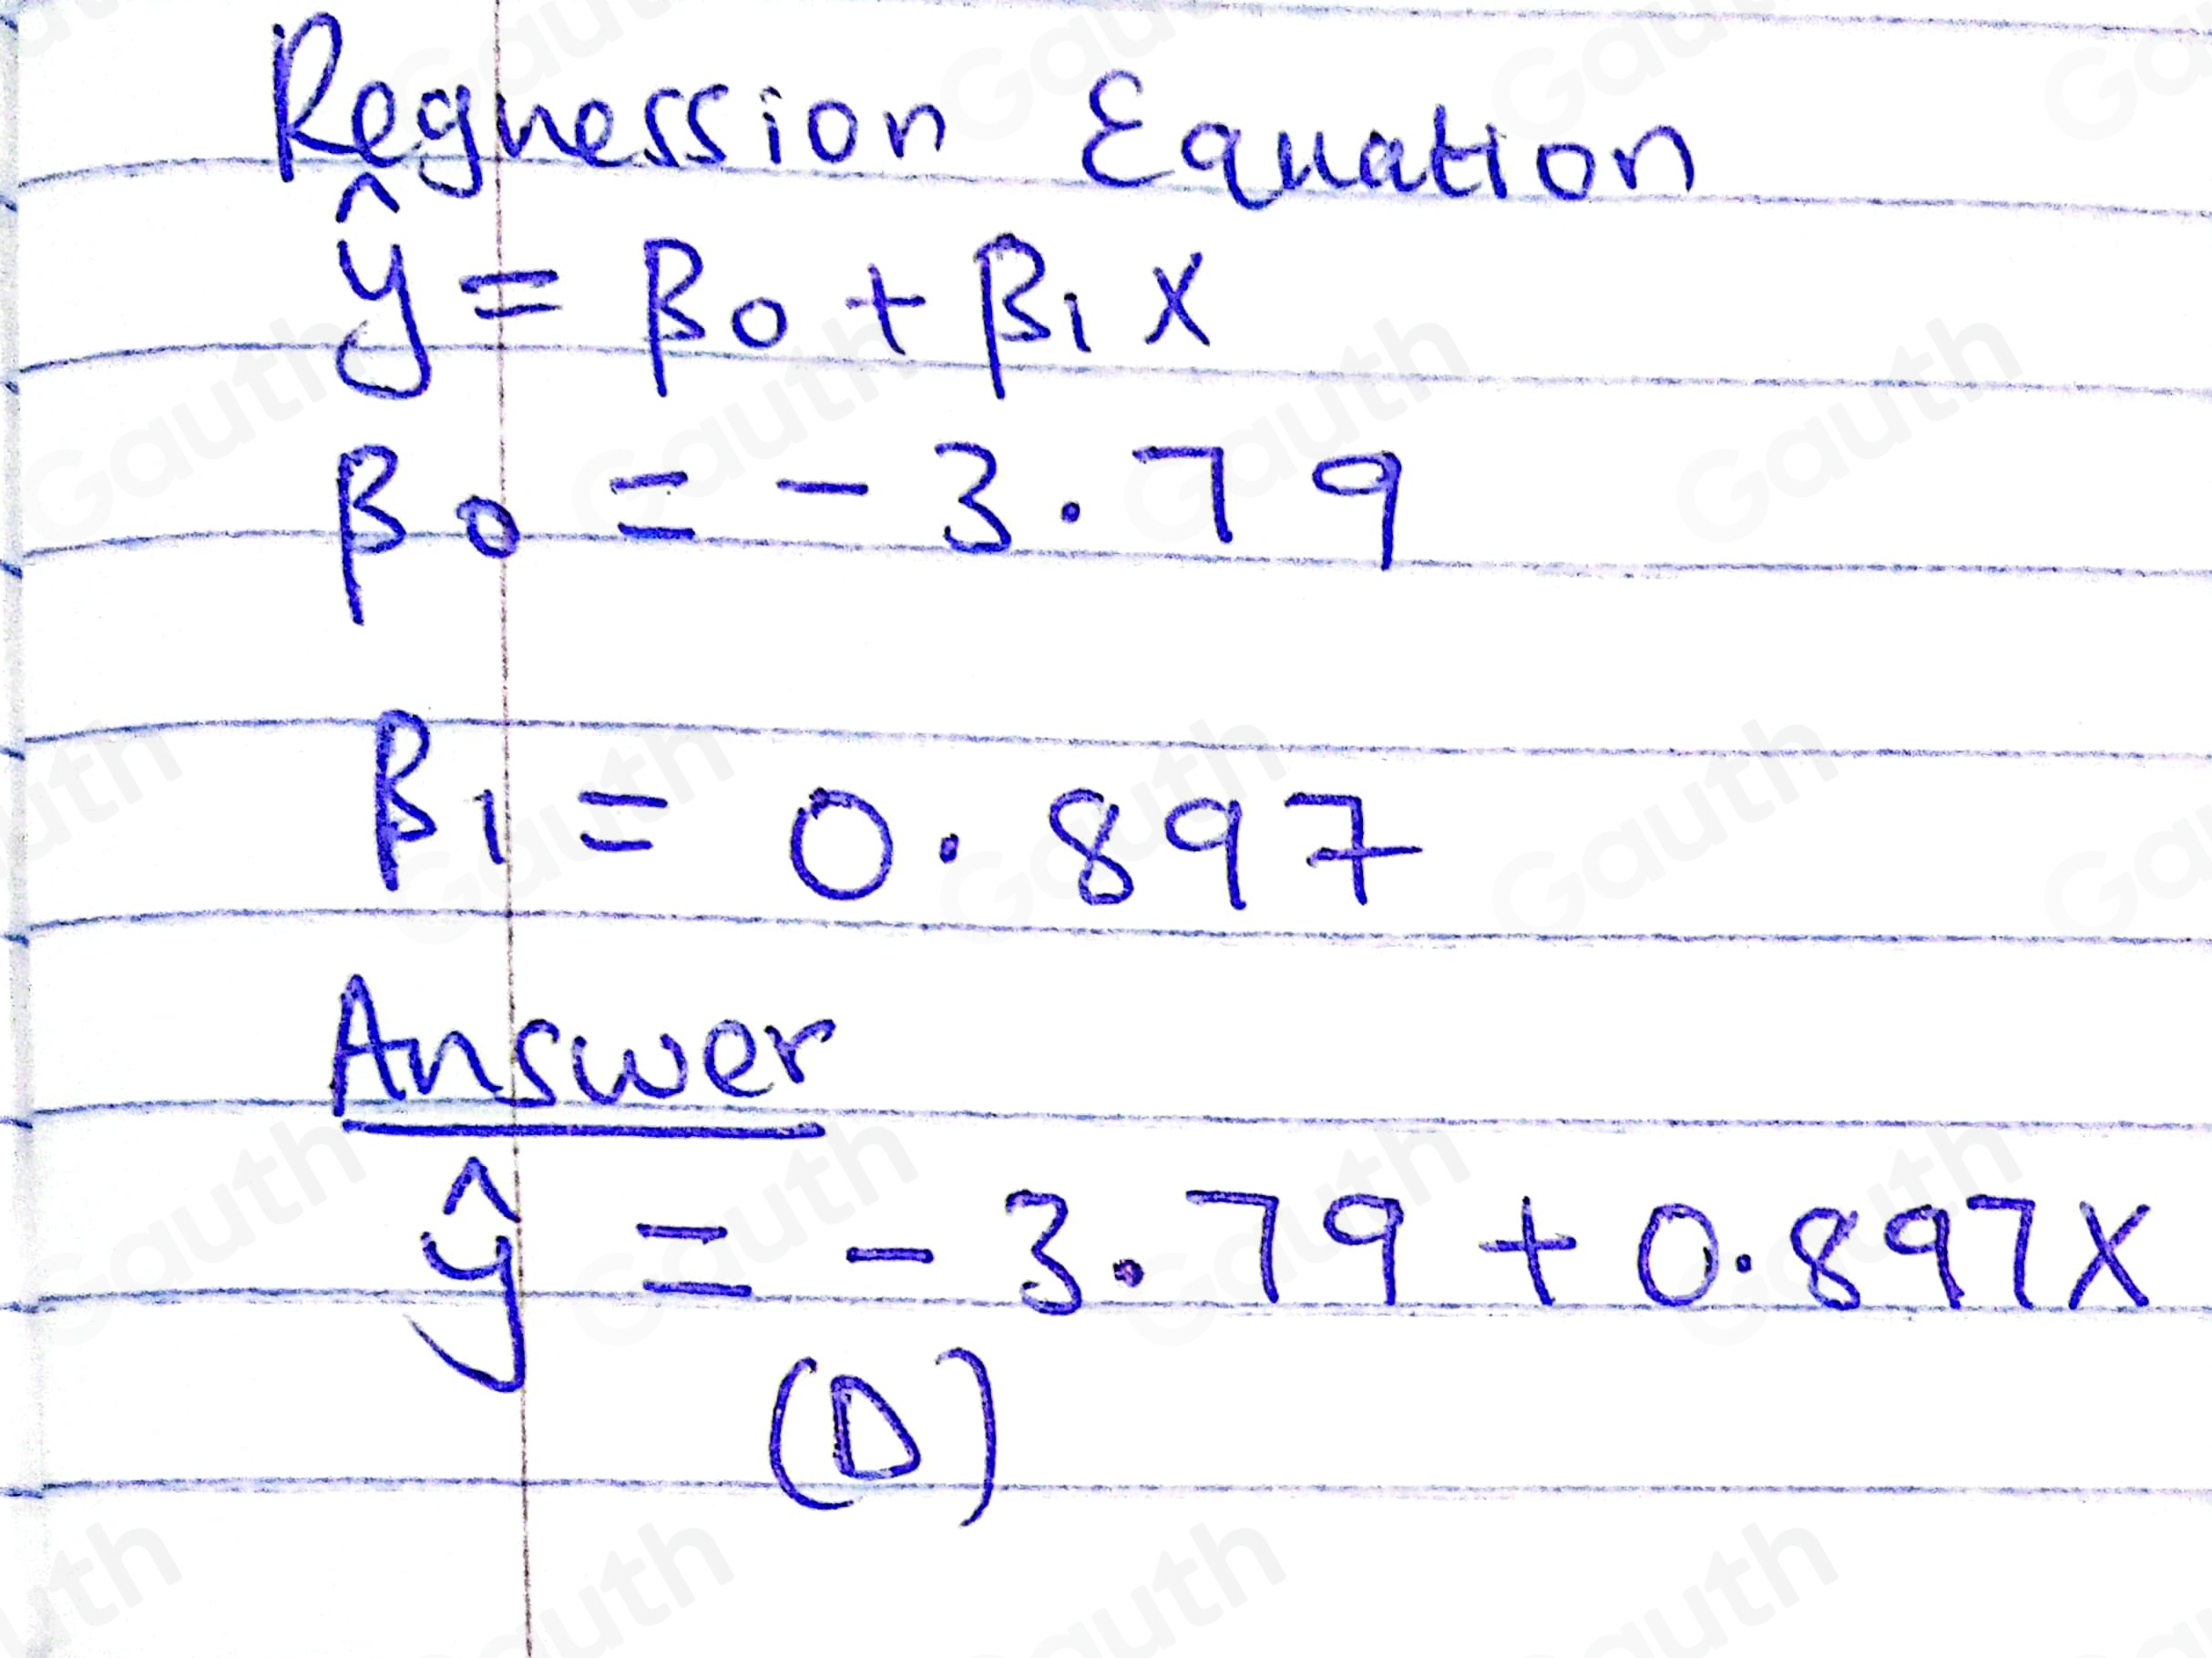 Regression Equation
ŷ = β0 + β1 x
β0 = - 3.79
β1 = 0.897
Answer
ŷ = - 3.79 + 0.897x
(D)